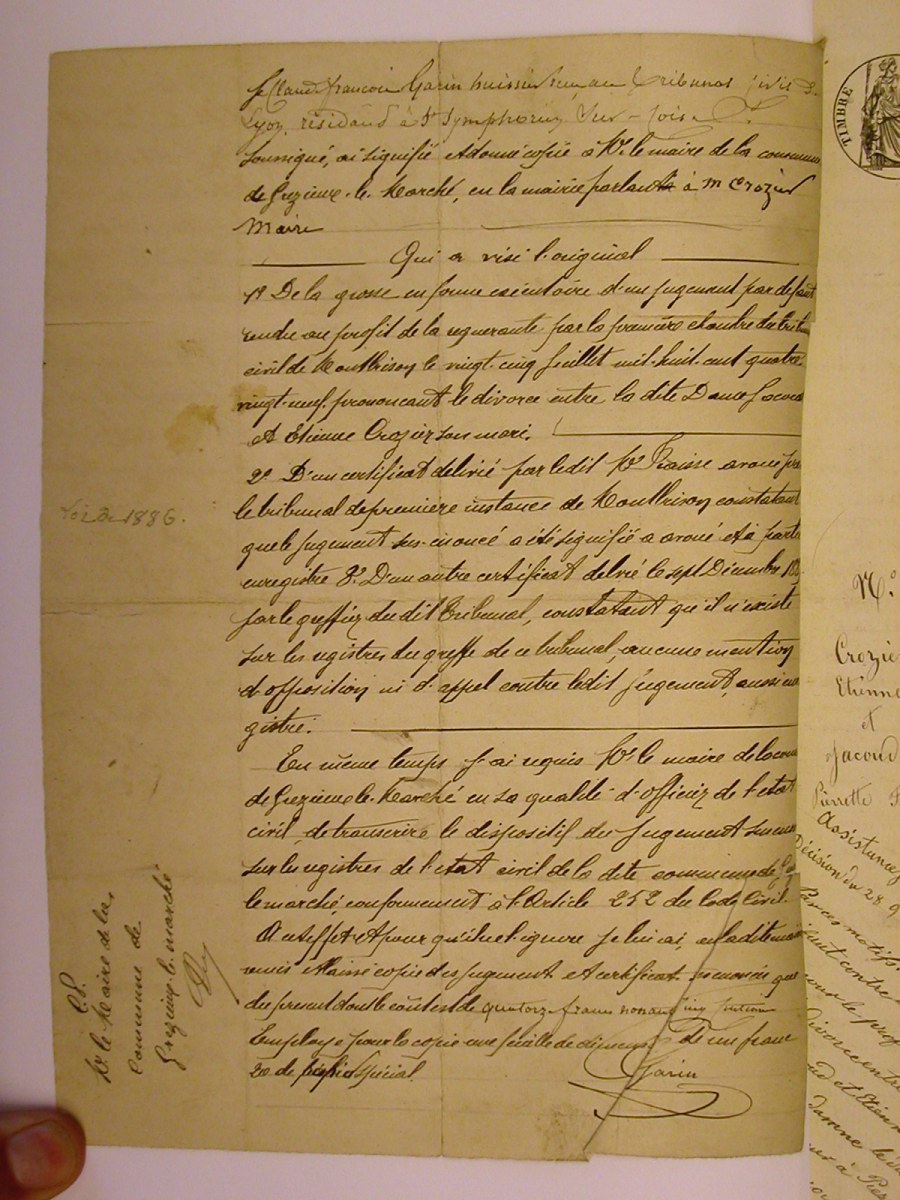 Je Claude François Garin huissier reçu au Tribunal civil de
Lyon, résidand à St Symphorien sur-Coise
Soussigné, ai signifié et donné copie à Mr le maire de la commune
de Grezieux-le-Marché, en la mairie parlant à M Crozier
Maire
Qui a visé l'original
1º De la grosse en forme exécutoire d'un jugement par défaut
rendu au profit de la requerante par la première chambre du tribunal
civil de Montbrison le vingt-cinq juillet mil-huit-cent quatre-
vingt-neuf, prononcant le divorce entre la dite Dame Jacoud
et Etienne Crozier son mari.
2º D'un certificat délivré par ledit Mr Fraisse avoué près
le tribunal de première instance de Montbrison constatant
que le jugement sus-enoncé a été signifié a avoué et à partie
enregistré 3º D'un autre certificat délivré le sept Décembre
par le greffier du dit Tribunal, constatant qu'il n'existe
sur les registres du greffe de ce tribunal, aucune mention
d'opposition ni d'appel contre ledit jugement, aussi enre
gistré.
En même temps j'ai requis Mr le maire de la com
de Grezieu le-Marché en sa qualité d'officier de l'état
civil, de transcrire le dispositif du jugement susenon
sur les registres de l'état civil de la dite commune de
le marché, conformement à l'Article 252 du Code Civil.
A cet effet et pour qu'il ne l'ignore je lui ai, en la dite mairie
remis et laissé copie des jugement et certificats que
du présent dont le coût est de quatorze francs
Employé pour la copie une feuille de De un franc
20 de spécial.
Garin
Loi de 1886.
C.P.
Mr le Maire de la
Commune de
Grezieux-le-marché
TIMBRE
Nº
Crozier
Etienne
et
Jacoud
Pierrette
Assistance
Décision du 28 9
Par ces motifs
contre
pour le prof
divorce entre
et Etien
damne le